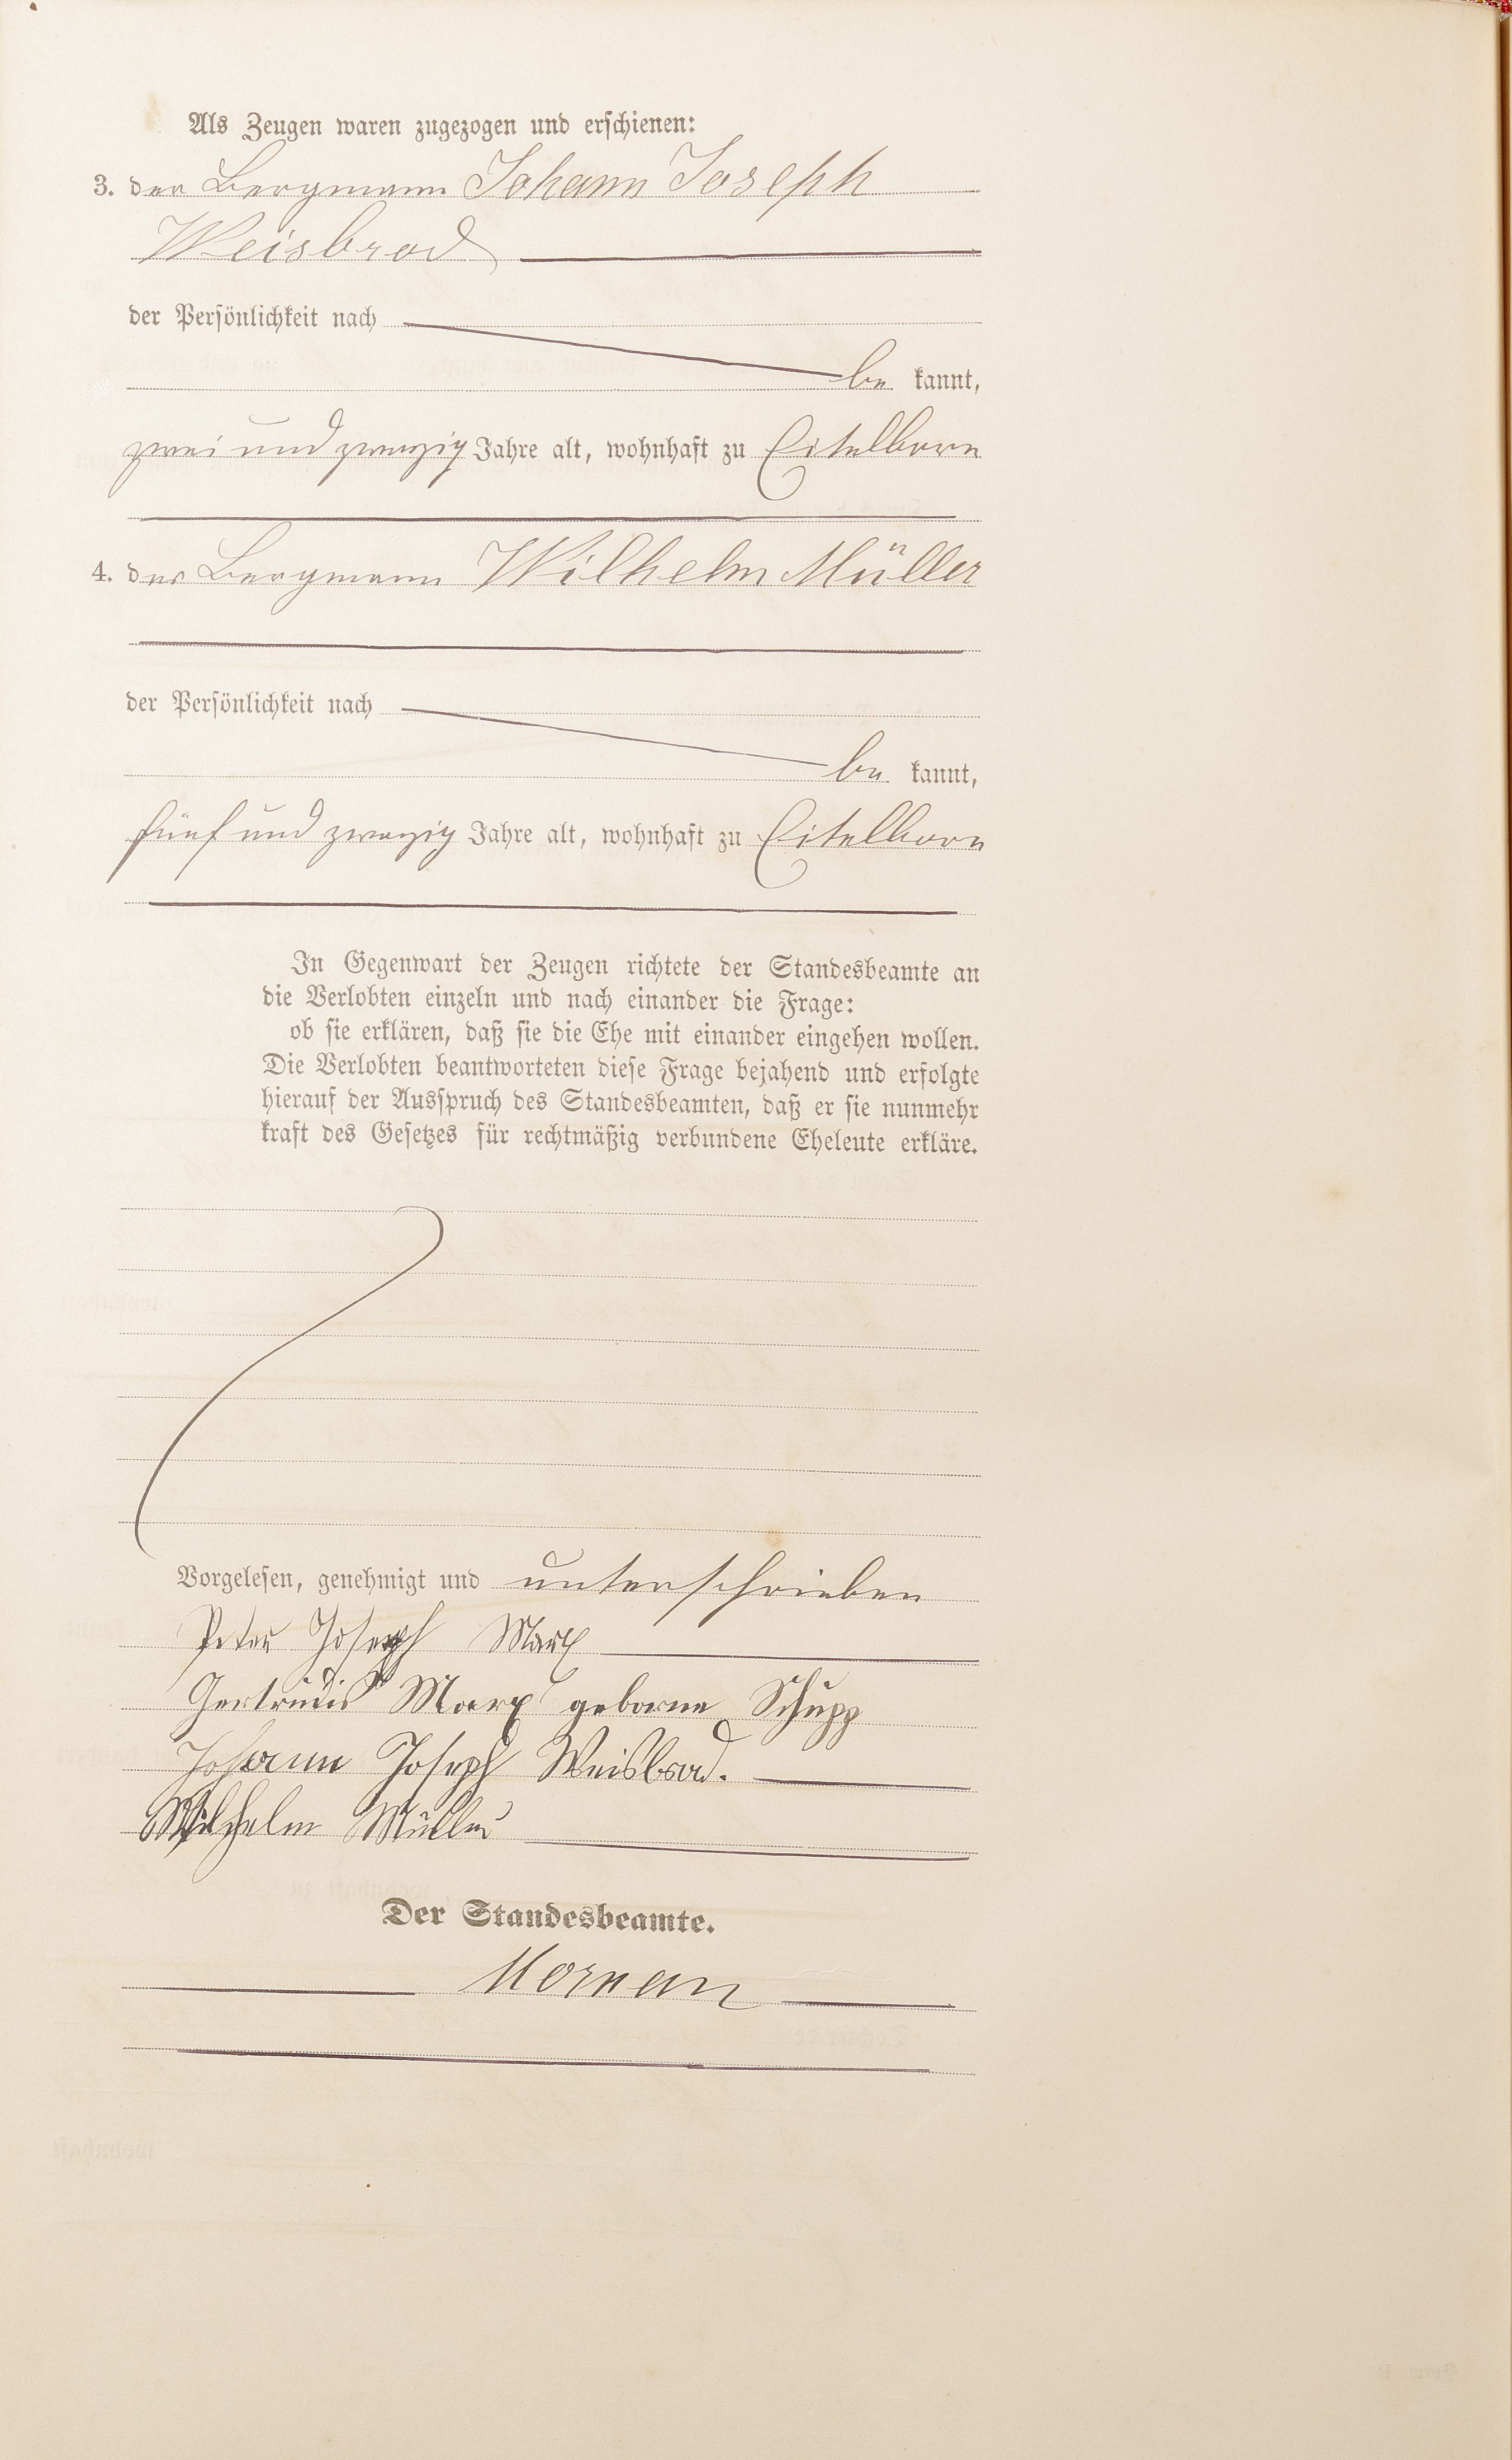 Als Zeugen waren zugezogen und erschienen:
3. der Bergmann Johann Joseph
Weisbrod
der Persönlichkeit nach
be kannt,
zwei und zwanzig Jahre alt, wohnhaft zu Eitelborn
4. der Bergmann Wilhelm Müller
der Persönlichkeit nach
be kannt,
fünf und zwanzig Jahre alt, wohnhaft zu Eitelborn
In Gegenwart der Zeugen richtete der Standesbeamte an
die Verlobten einzeln und nach einander die Frage:
ob sie erklären, daß sie die Ehe mit einander eingehen wollen.
Die Verlobten beantworteten diese Frage bejahend und erfolgte
hierauf der Ausspruch des Standesbeamten, daß er sie nunmehr
kraft des Gesetzes für rechtmäßig verbundene Eheleute erkläre.
Vorgelesen, genehmigt und unterschrieben
Peter Joseph Marx
Gertrudis Marx geborne Schupp
Johann Joseph Weisbrod.
Wilhelm Müller
Der Standesbeamte.